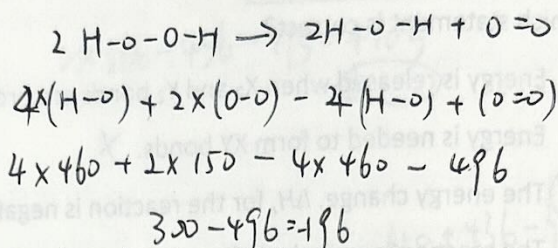 2 H-O-O-H → 2H-O-H + O=O
4×(H-O) + 2×(O-O) - 4(H-O) + (O=O)
4×460 + 2×150 - 4×460 - 496
300-496=-196